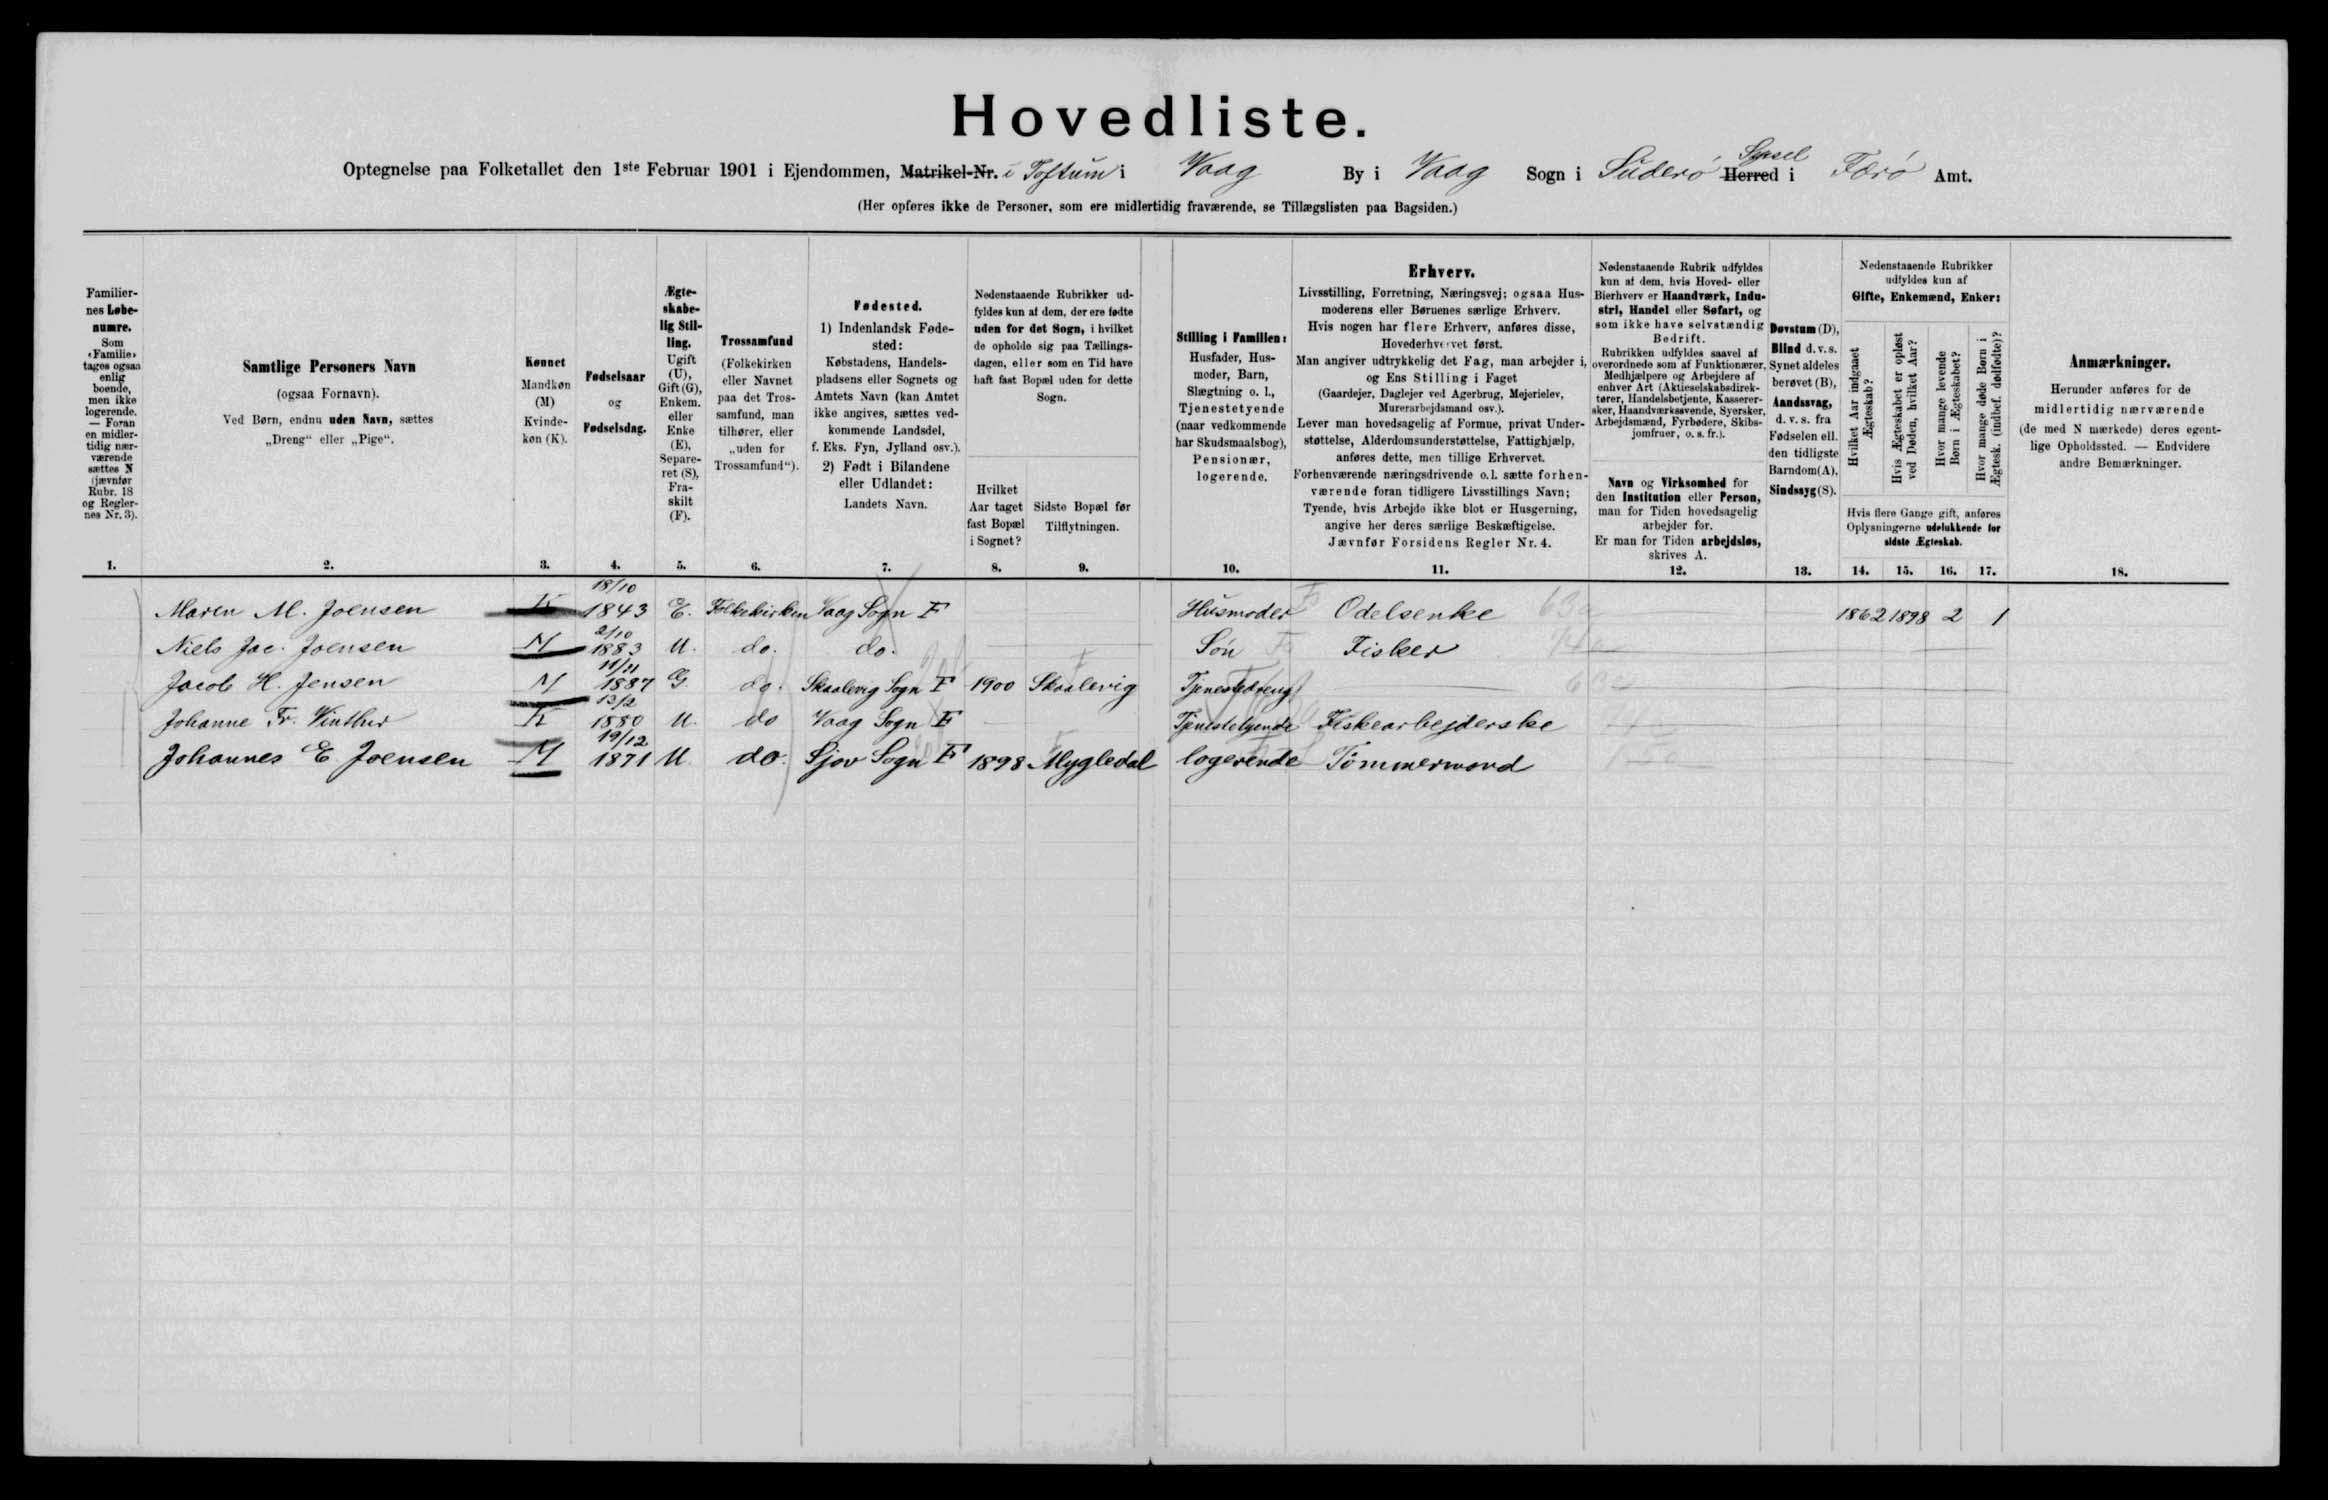 Hovedliste.
Optegnelse paa Folketallet den 1ste Februar 1901 i Ejendommen, Matrikel-Nr. i Toftum i Vaag By i Vaag Sogn i Suderø Herred Sysel i Færø Amt.
(Her opføres ikke de Personer, som ere midlertidig fraværende, se Tillægslisten paa Bagsiden.)
Familier-
nes Løbe-
numre.
Som
«Familie»
tages ogsaa
enlig
boende,
men ikke
logerende.
— Foran
en midler-
tidig nær-
værende
sættes N
(jævnfør
Rubr. 18
og Regler-
nes Nr. 3).
Samtlige Personers Navn
(ogsaa Fornavn).
Ved Børn, endnu uden Navn, sættes
„Dreng“ eller „Pige“.
Kønnet
Mandkøn
(M)
Kvinde-
køn (K).
Fødselsaar
og
Fødselsdag.
Ægte-
skabe-
lig Stil-
ling.
Ugift
(U),
Gift (G),
Enkem.
eller
Enke
(E),
Separe-
ret (S),
Fra-
skilt
(F).
Trossamfund
(Folkekirken
eller Navnet
paa det Tros-
samfund, man
tilhører, eller
„uden for
Trossamfund“).
Fødested.
1) Indenlandsk Føde-
sted:
Købstadens, Handels-
pladsens eller Sognets og
Amtets Navn (kan Amtet
ikke angives, sættes ved-
kommende Landsdel,
f. Eks. Fyn, Jylland osv.).
2) Født i Bilandene
eller Udlandet:
Landets Navn.
Nedenstaaende Rubrikker ud-
fyldes kun af dem, der ere fødte
uden for det Sogn, i hvilket
de opholde sig paa Tællings-
dagen, eller som en Tid have
haft fast Bopæl uden for dette
Sogn.
Hvilket
Aar taget
fast Bopæl
i Sognet?
Sidste Bopæl før
Tilflytningen.
Stilling i Familien:
Husfader, Hus-
moder, Barn,
Slægtning o. l.,
Tjenestetyende
(naar vedkommende
har Skudsmaalsbog),
Pensionær,
logerende.
Erhverv.
Livsstilling, Forretning, Næringsvej; ogsaa Hus-
moderens eller Børnenes særlige Erhverv.
Hvis nogen har flere Erhverv, anføres disse,
Hovederhvervet først.
Man angiver udtrykkelig det Fag, man arbejder i,
og Ens Stilling i Faget
(Gaardejer, Daglejer ved Agerbrug, Mejerielev,
Murerarbejdsmand osv.).
Lever man hovedsagelig af Formue, privat Under-
støttelse, Alderdomsunderstøttelse, Fattighjælp,
anføres dette, men tillige Erhvervet.
Forhenværende næringsdrivende o. l. sætte forhen-
værende foran tidligere Livsstillings Navn;
Tyende, hvis Arbejde ikke blot er Husgerning,
angive her deres særlige Beskæftigelse.
Jævnfør Forsidens Regler Nr. 4.
Nedenstaaende Rubrik udfyldes
kun af dem, hvis Hoved- eller
Bierhverv er Haandværk, Indu-
stri, Handel eller Søfart, og
som ikke have selvstændig
Bedrift.
Rubrikken udfyldes saavel af
overordnede som af Funktionærer,
Medhjælpere og Arbejdere af
enhver Art (Aktieselskabsdirek-
tører, Handelsbetjente, Kasserer-
sker, Haandværkssvende, Syersker,
Arbejdsmænd, Fyrbødere, Skibs-
jomfruer, o. s. fr.).
Navn og Virksomhed for
den Institution eller Person,
man for Tiden hovedsagelig
arbejder for.
Er man for Tiden arbejdsløs,
skrives A.
Døvstum (D),
Blind d. v. s.
Synet aldeles
berøvet (B),
Aandssvag,
d. v. s. fra
Fødselen ell.
den tidligste
Barndom (A),
Sindssyg (S).
Nedenstaaende Rubrikker
udfyldes kun af
Gifte, Enkemænd, Enker:
Hvilket Aar indgaaet
Ægteskab?
Hvis Ægteskabet er opløst
ved Døden, hvilket Aar?
Hvor mange levende
Børn i Ægteskabet?
Hvor mange døde Børn i
Ægtesk. (indbef. dødfødte)?
Hvis flere Gange gift, anføres
Oplysningerne udelukkende for
sidste Ægteskab.
Anmærkninger.
Herunder anføres for de
midlertidig nærværende
(de med N mærkede) deres egent-
lige Opholdssted. — Endvidere
andre Bemærkninger.
1. 2. 3. 4. 5. 6. 7. 8. 9. 10. 11. 12. 13. 14. 15. 16. 17. 18.
Maren M. Joensen K 18/10 1843 E. Folkekirken Vaag Sogn F Husmoder Odelsenke 1862 1898 2 1
Niels Jac. Joensen M 2/10 1883 U. do. do. Søn Fisker
Jacob H. Jensen M 11/11 1887 G. do. Skaalevig Sogn F 1900 Skaalevig Tjenestedreng
Johanne Fr. Winther K 13/2 1880 U. do Vaag Sogn F Tjenestetyende Fiskearbejderske
Johannes E. Joensen M 19/12 1871 U. do. Sjov Sogn F 1898 Mygledal logerende Tømmermand